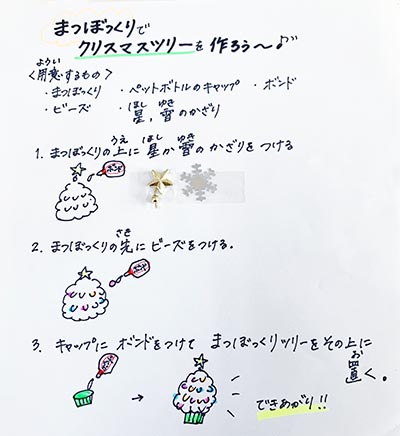 まつぼっくりで
クリスマスツリーを作ろう〜♪
ようい
<用意するもの>
・まつぼっくり ・ペットボトルのキャップ ・ボンド
ほし ゆき
・ビーズ ・星，雪のかざり
うえ ほし ゆき
1. まつぼっくりの上に星か雪のかざりをつける
ボンド
さき
2. まつぼっくりの先にビーズをつける。
ボンド
3. キャップにボンドをつけて まつぼっくりツリーをその上に
お
置く。
ボンド
→
できあがり!!